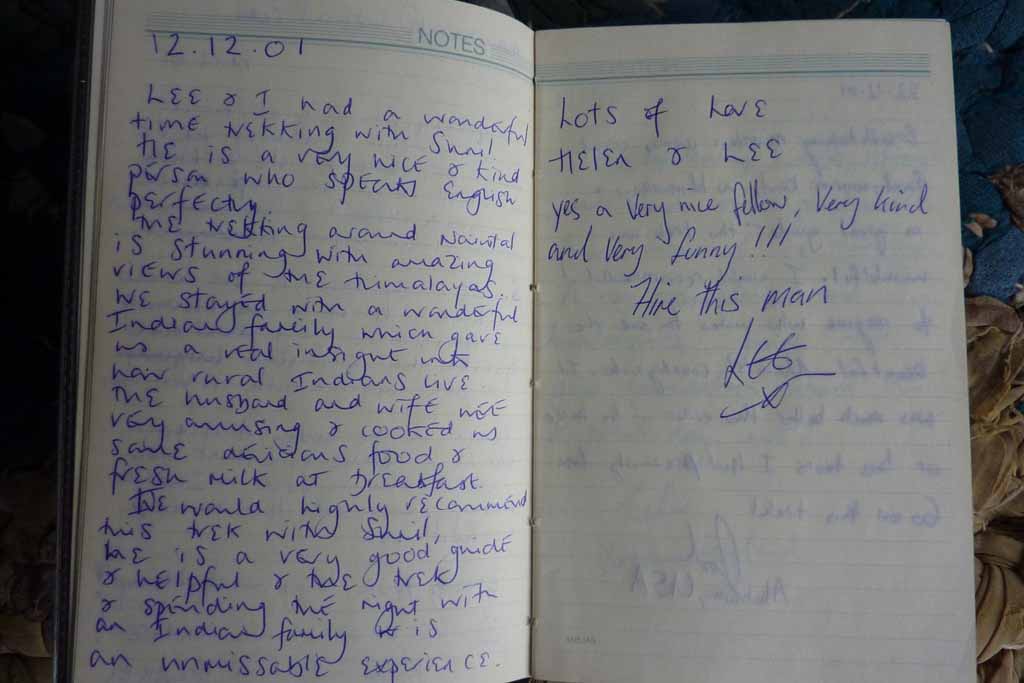 NOTES
12.12.01
LEE & I had a wonderful
time trekking with Sunil
He is a very nice & kind
person who speaks English
perfectly.
The trekking around Nainital
is stunning with amazing
views of the Himalayas.
We stayed with a wonderful
Indian family which gave
us a real insight into
how rural Indians live.
The husband and wife were
very amusing & cooked us
some delicious food &
fresh milk at breakfast.
We would highly recommend
this trek with Sunil,
he is a very good guide
& helpful & the trek
& spending the night with
an Indian family is
an unmissable experience.
Lots of Love
Helen & LEE
yes a very nice fellow, Very kind
and Very funny!!!
Hire this man
LEE